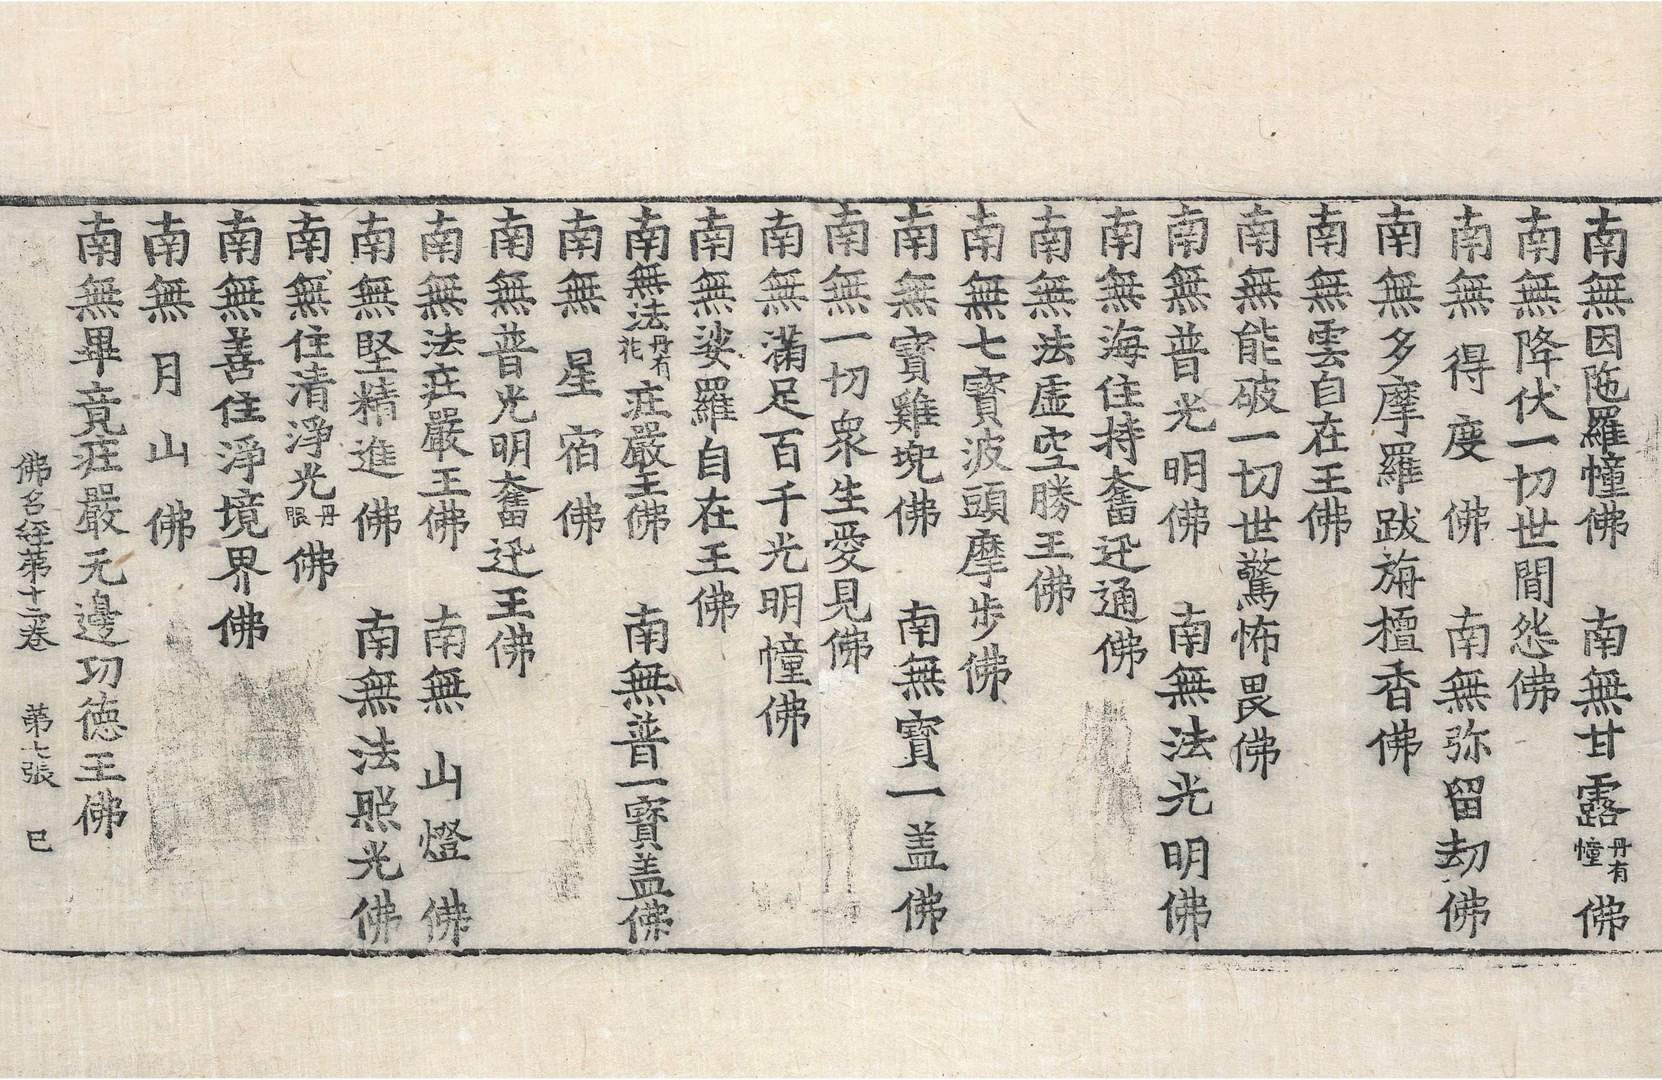 南無因陁羅幢佛　南無甘露丹有幢佛
南無降伏一切世間怨佛
南無得度佛　南無弥留劫佛
南無多摩羅跋旃檀香佛
南無雲自在王佛
南無能破一切世驚怖畏佛
南無普光明佛　南無法光明佛
南無海住持奮迅通佛
南無法虛空勝王佛
南無七寶波頭摩步佛
南無寶雞兜佛　南無寶一盖佛
南無一切衆生愛見佛
南無滿足百千光明幢佛
南無娑羅自在王佛
南無法丹有花莊嚴王佛　南無普一寶盖佛
南無星宿佛
南無普光明奮迅王佛
南無法莊嚴王佛　南無山燈佛
南無堅精進佛　南無法照光佛
南無住清淨光丹眼佛
南無善住淨境界佛
南無月山佛
南無畢竟莊嚴无邊功徳王佛
佛名經第十二卷　第七張　巳